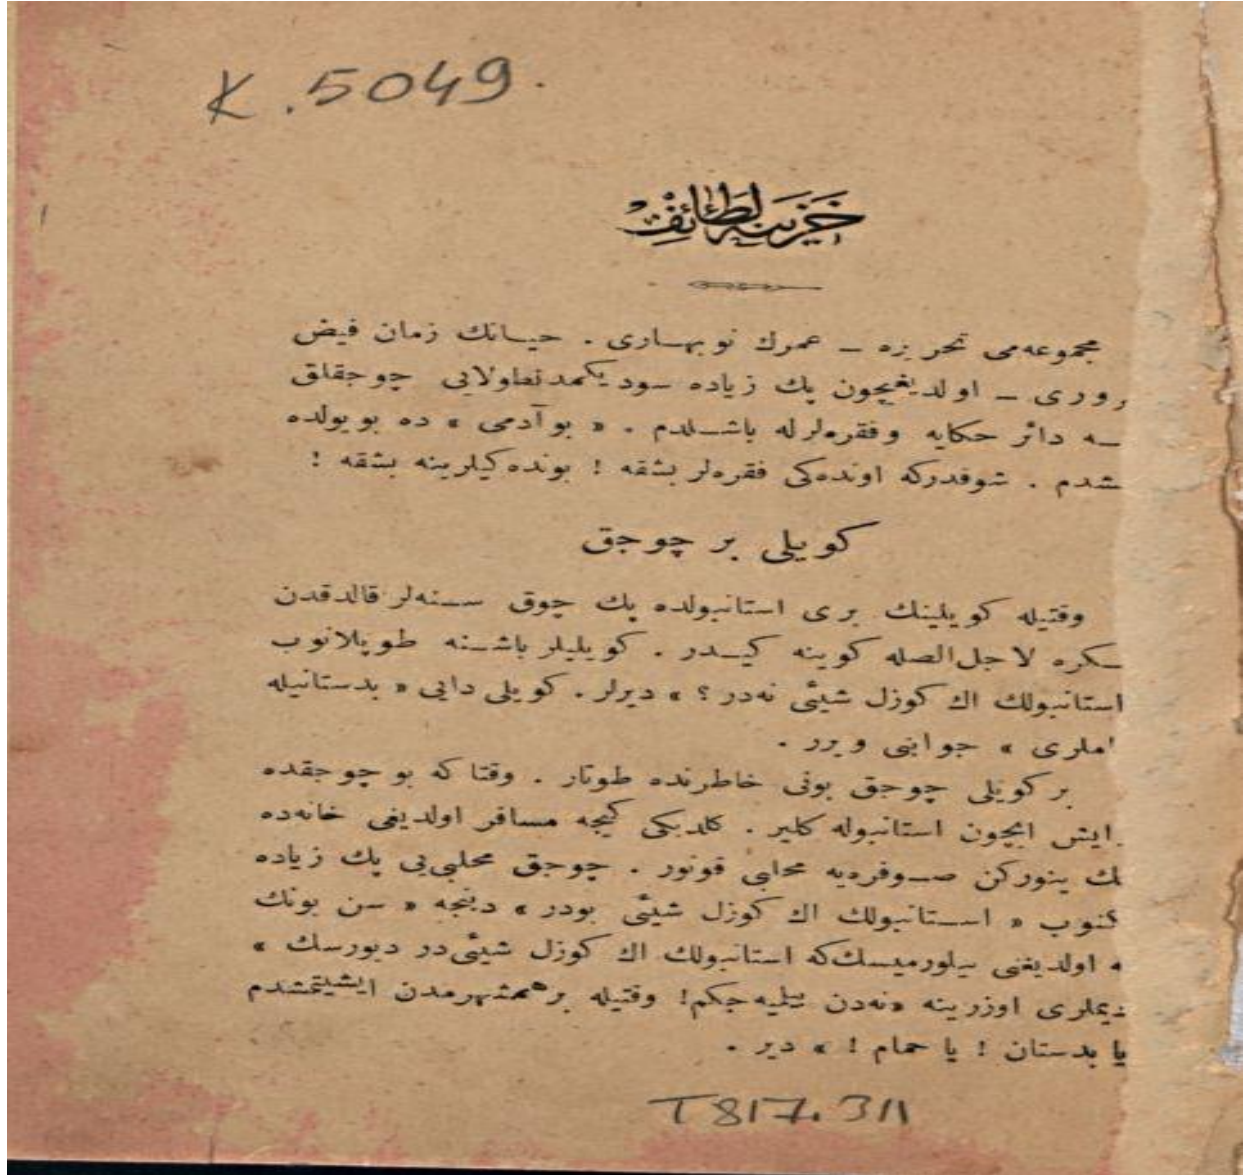 K. 5049.
خزینهٔ لطائف
مجموعه‌می تحریره ــ عمرك نوبهاری . حیاتك زمان فیض
روری ــ اولدیغیچون پك زیاده سودیكمدن طولایی چوجقلق
ــه دائر حكایه وفقره‌لرله باشلدم . « بوآدمی » ده بویولده
ــشدم . شوقدركه اونده‌كی فقره‌لر بشقه ! بونده‌كیلرینه بشقه !
كویلی بر چوجق
وقتیله كویلینك بری استانبولده پك چوق سنه‌لر قالدقدن
ــكره لاجل‌الصله كوینه كیدر . كویلیلر باشنه طوپلانوب
استانبولك اك كوزل شیئی نه‌در ؟ » دیرلر . كویلی دایی « بدستانیله
املری » جوابنی ویرر .
بر كویلی چوجق بونی خاطرنده طوتار . وقتا كه بو چوجقده
ایش ایچون استانبوله كلیر . كلدیكی كیجه مسافر اولدیغی خانه‌ده
ـك ینوركن صوفره‌یه محلبی قونور . چوجق محلبی‌یی پك زیاده
ـكنوب « استانبولك اك كوزل شیئی بودر » دینجه « سن بونك
ـه اولدیغنی بیلورمیسك‌كه استانبولك اك كوزل شیئی‌در دیورسك »
دیملری اوزرینه «نه‌دن بیلمیه‌جكم! وقتیله بر همشهرمدن ایشیتمشدم
یا بدستان ! یا حمام ! » دیر .
T 817.311